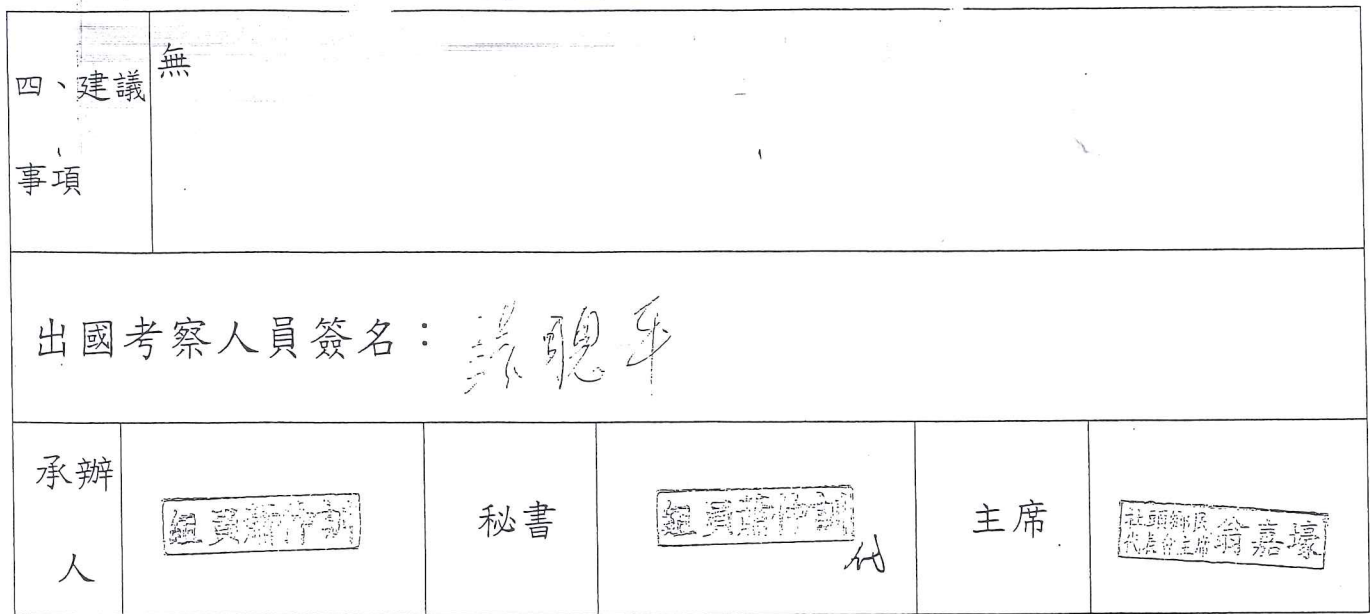 四、建議
事項
無
出國考察人員簽名：張聰平
承辦
人
組員蕭仲訓
秘書
組員蕭仲訓
代
主席
社頭鄉民
代表會主席 翁嘉壕